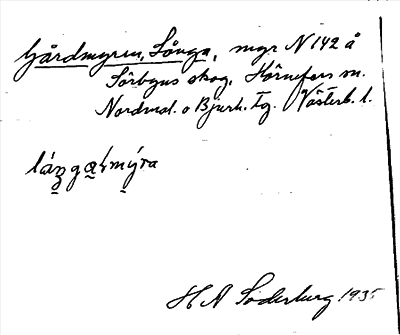 Gårdmyren, Långa, myr N 142 å
Sörbyns skog, Hörnefors sn.
Nordmal. o Bjurh. tg. Västerb. l.
H A Söderberg 1935